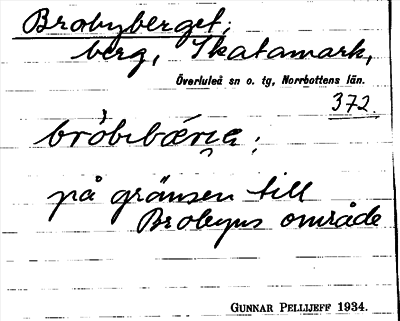 Brobyberget;
berg, Skatamark,
Överluleå sn o. tg, Norrbottens län.
372.
på gränsen till
Brobyns område
GUNNAR PELLIJEFF 1934.